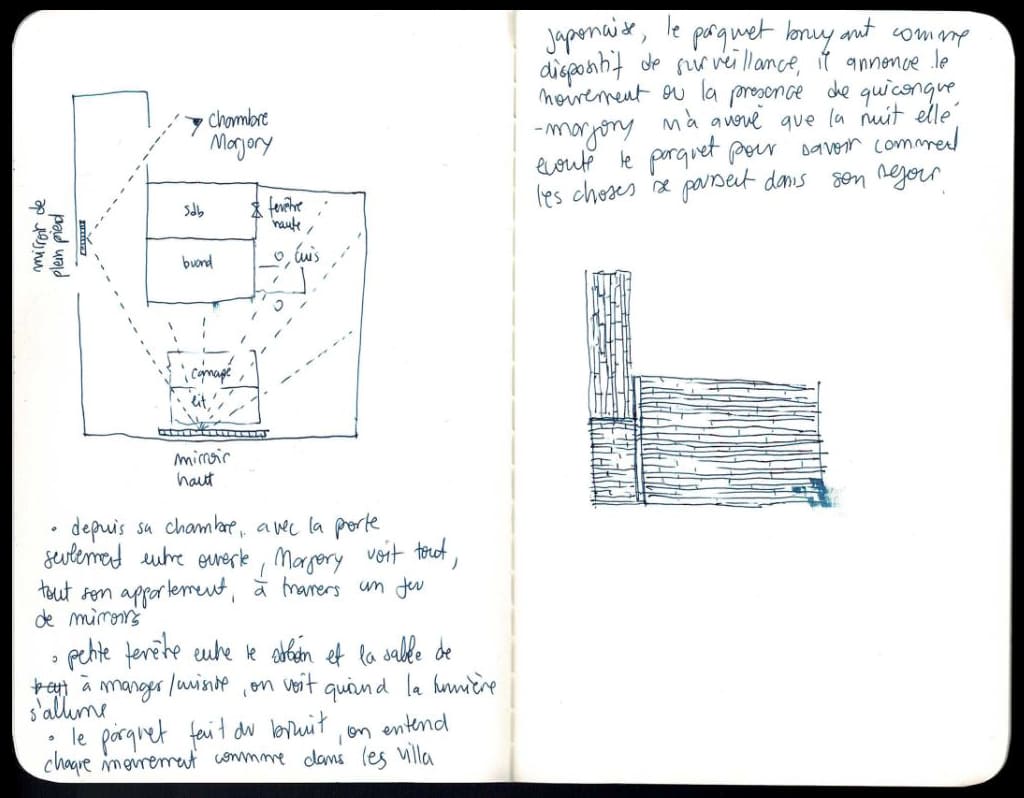 chambre
Marjory
mirroir de
plein pied
sdb
fenêtre
haute
buand
cuis
canapé
lit
mirroir
haut
• depuis sa chambre, avec la porte
seulement entre ouverte, Marjory voit tout,
tout son appartement, à travers un jeu
de mirroirs
• petite fenêtre entre le et la salle de
à manger/cuisine, on voit quand la lumière
s'allume
• le parquet fait du bruit, on entend
chaque mouvement comme dans les villa
japonaise, le parquet bruyant comme
dispositif de surveillance, il annonce le
mouvement ou la presence de quiconque
- marjory m'a avoué que la nuit elle
ecoute le parquet pour savoir comment
les choses se passent dans son sejour.